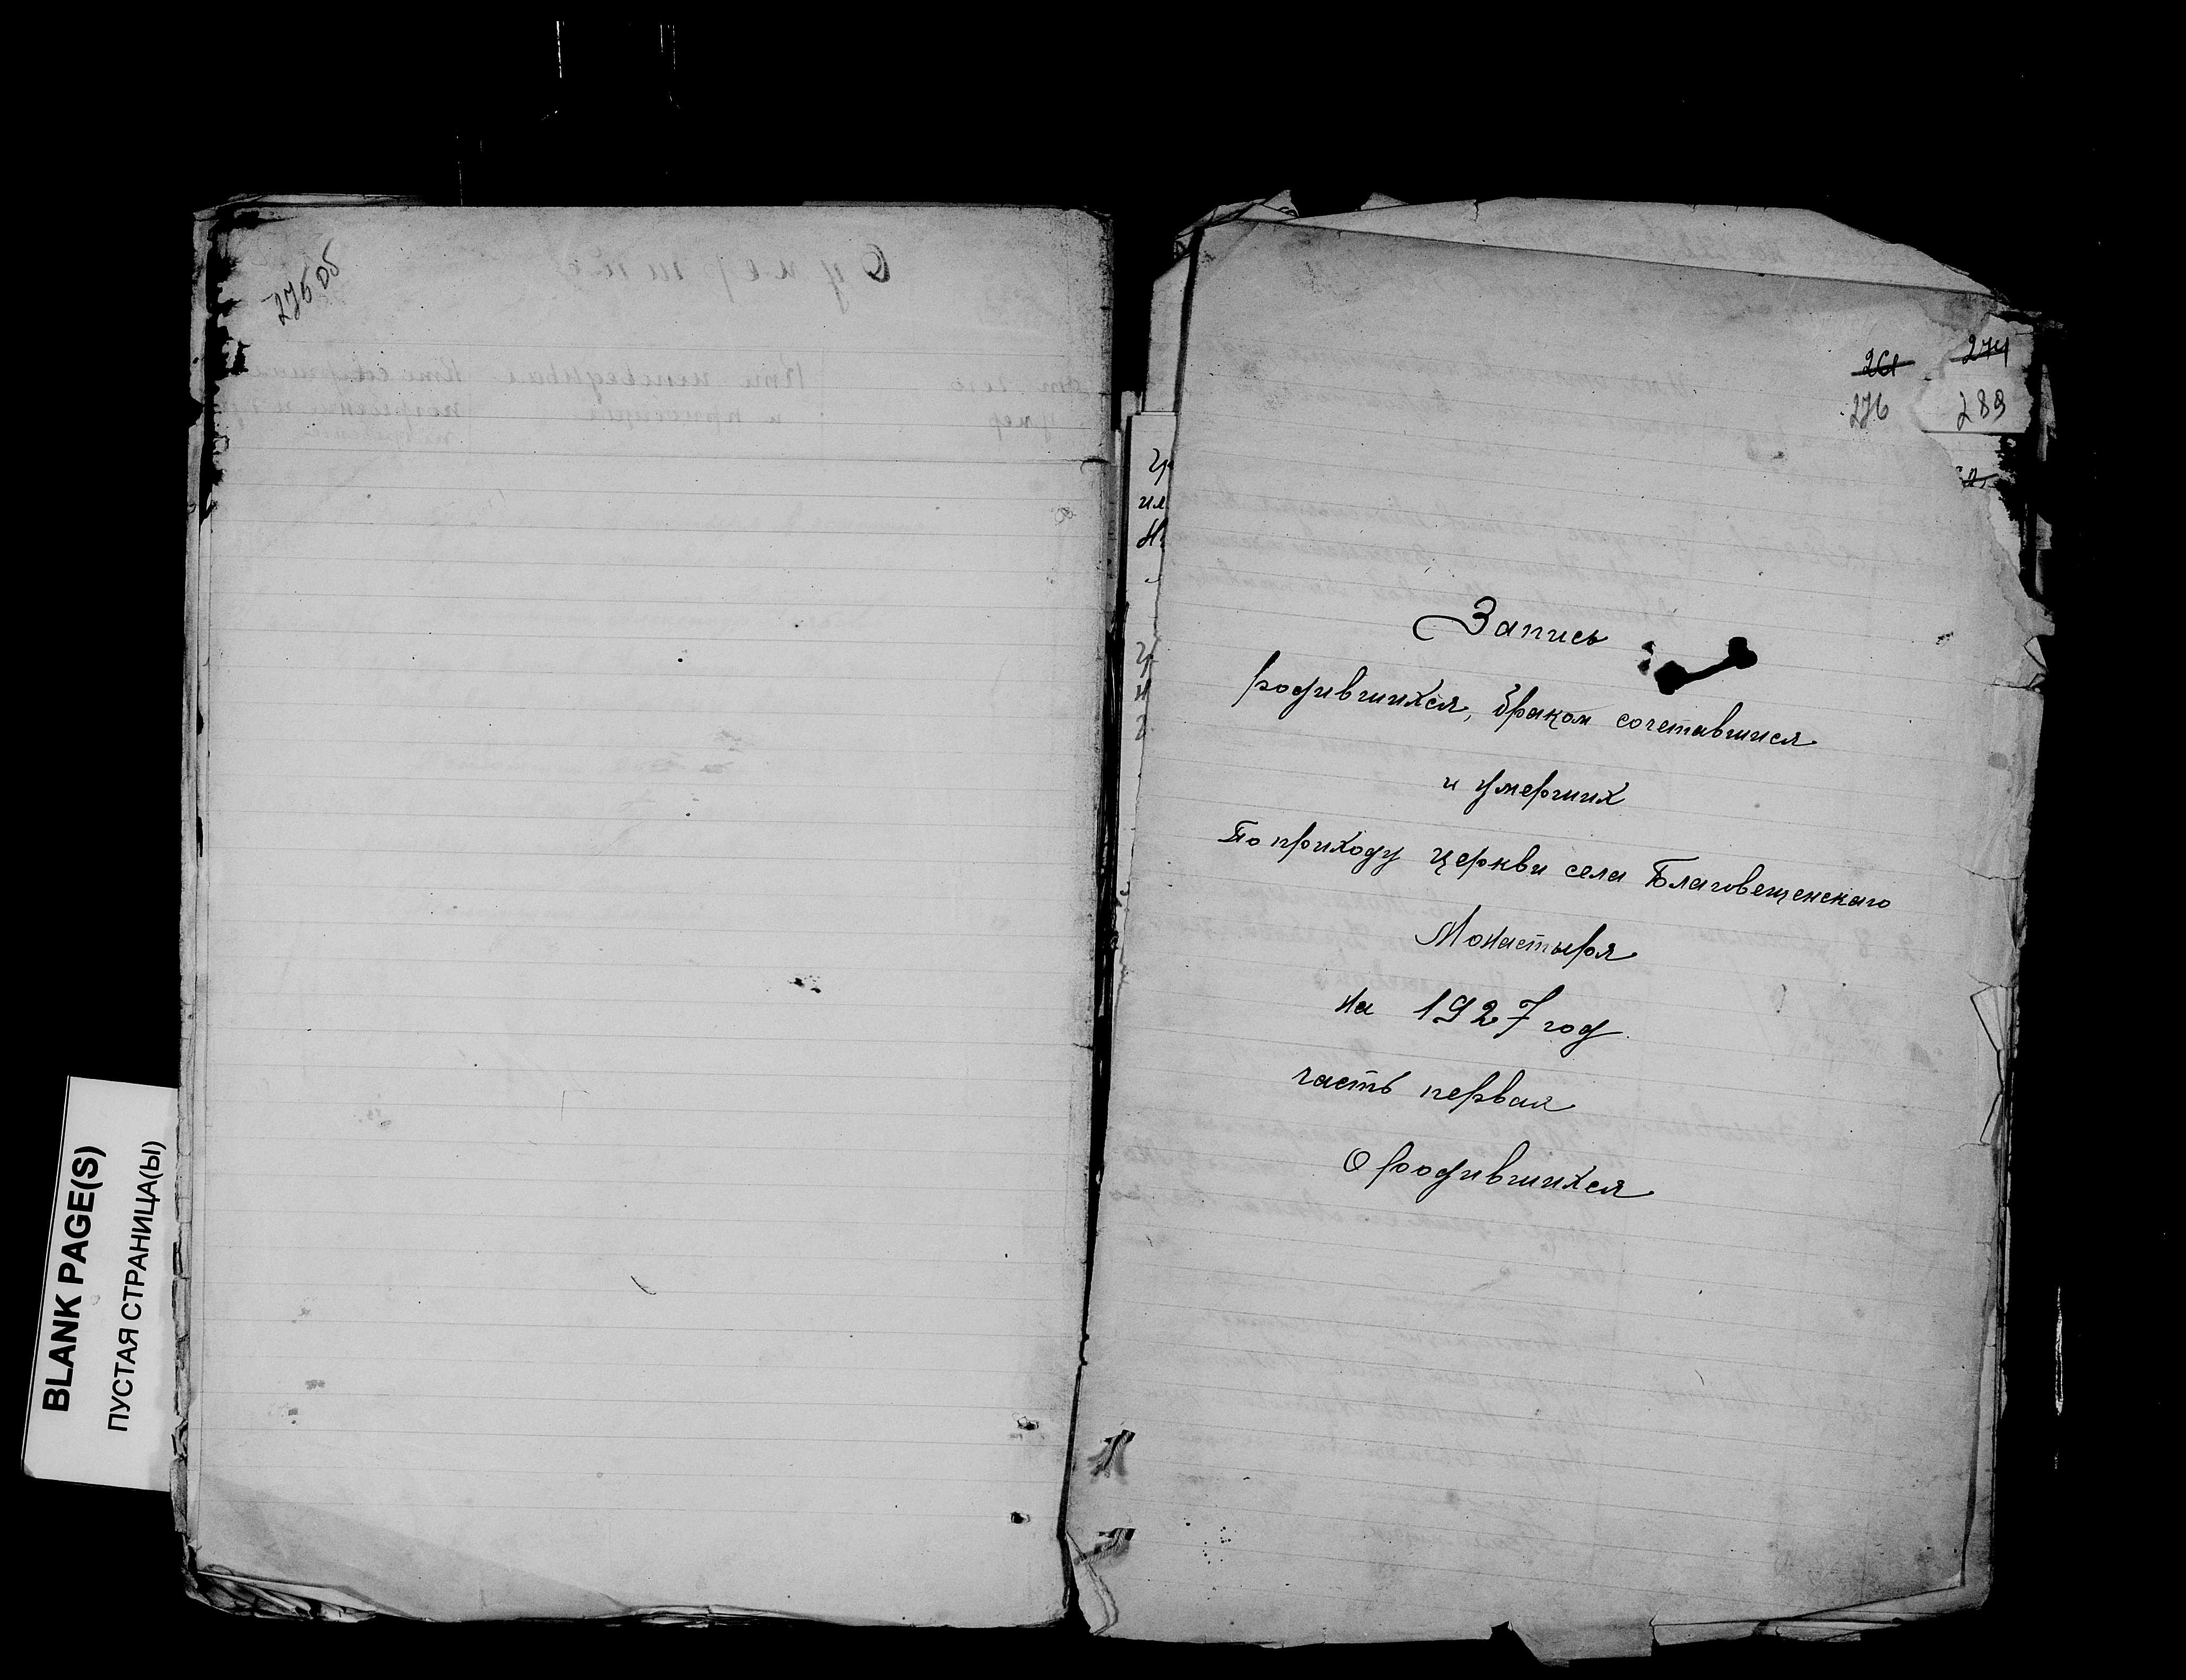 275 об
BLANK PAGE(S)
ПУСТАЯ СТРАНИЦА(Ы)
261 274
276 289
Запись
родившихся, браком сочетавшися
и умерших
По приходу церкви села Благовещенскаго
Монастыря
на 1927 год.
часть первая
О родившихся